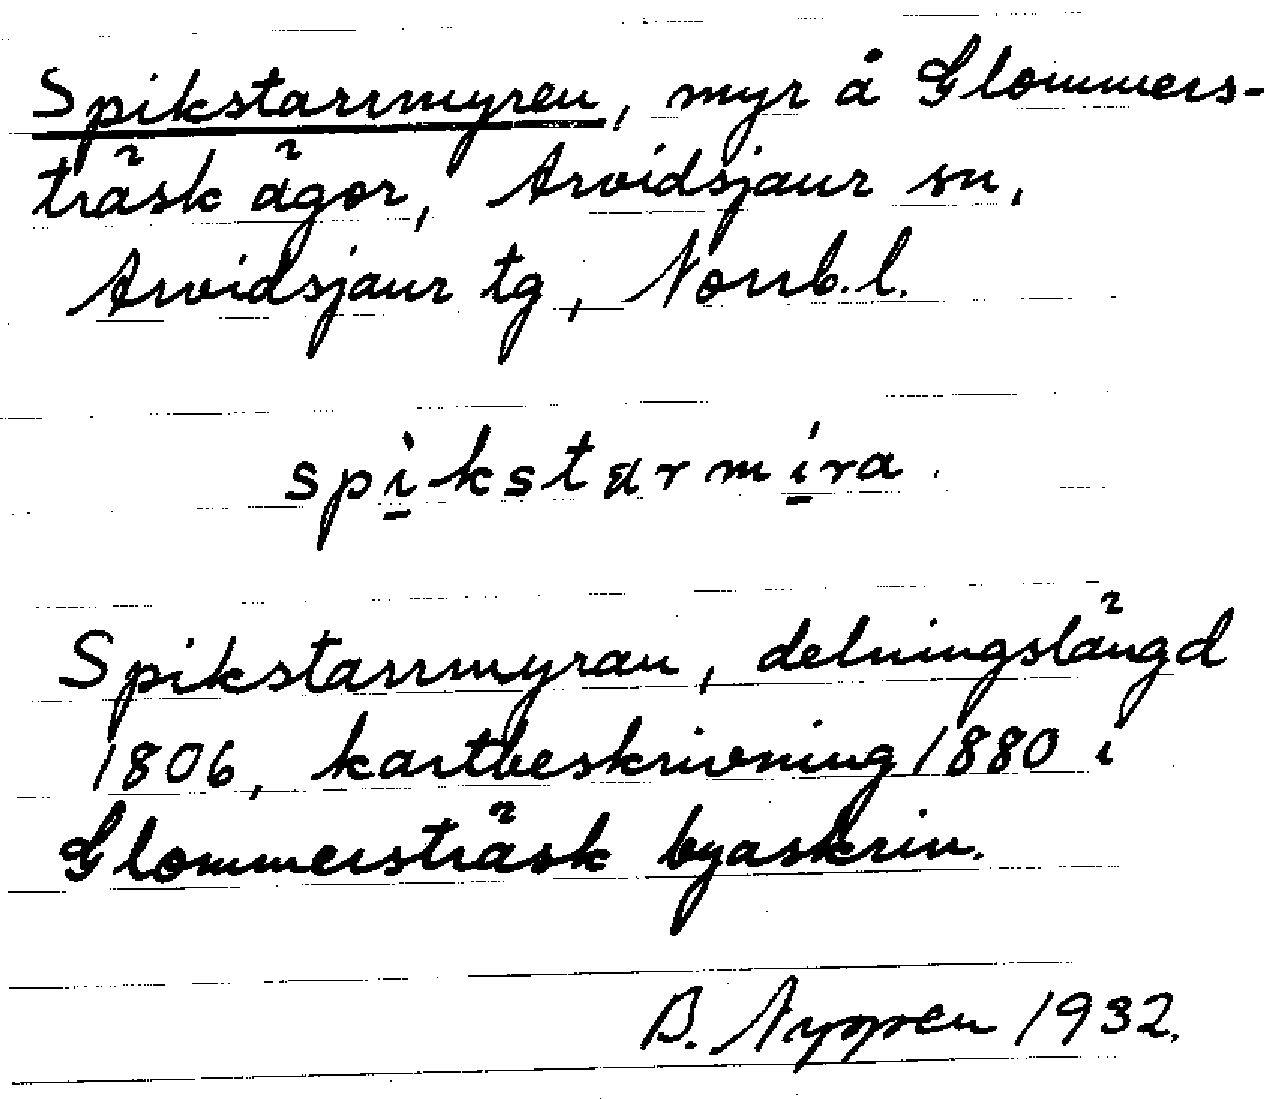 Spikstarrmyren, myr å Glommers-
träsk ägor, Arvidsjaur sn,
Arvidsjaur tg, Norrb. l.
spikstarmira
Spikstarrmyran, delningslängd
1806, kartbeskrivning 1880 i
Glommersträsk byaskrin.
B. Nyppen 1932.